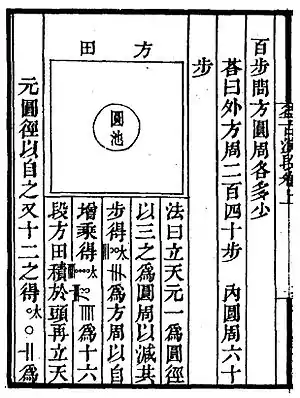 益古演段卷上
百步問方圓周各多少
荅曰外方周二百四十步　內圓周六十
步
方田
圓池
法曰立天元一爲圓徑
以三之爲圓周以減共
步得太爲方周以自
增乘得太爲十六
段方田積於頭再立天
元圓徑以自之又十二之得太○爲